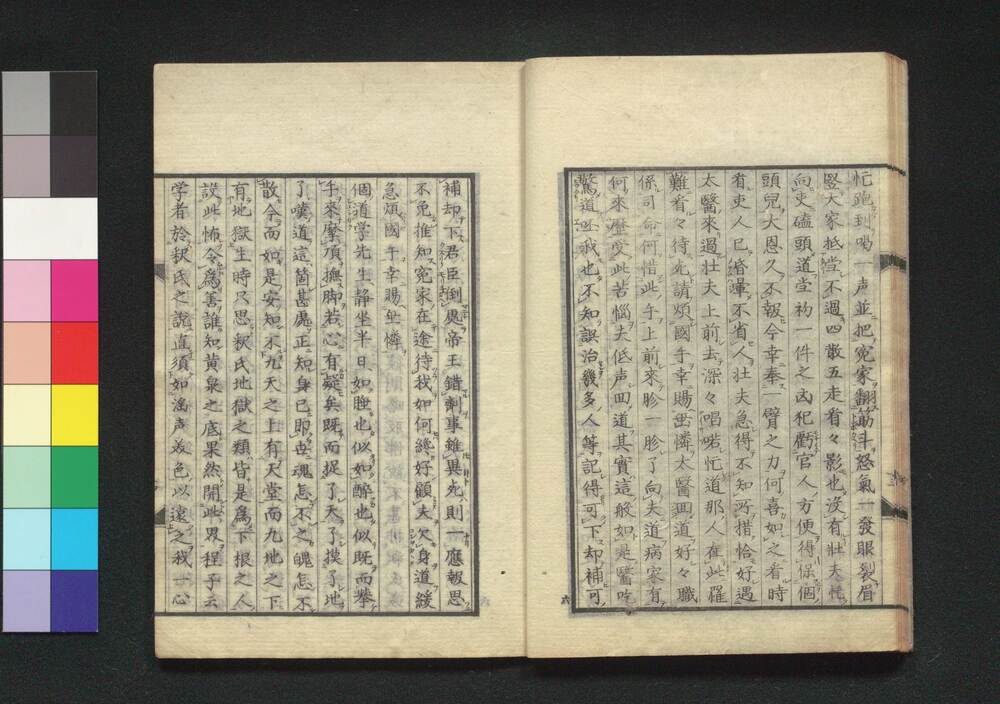 忙跑到喝一声並把冤家翻筋斗怒氣一發眼裂眉
竪大家抵當不過四散五走看々影也沒有壮夫忙
向吏磕頭道堂礽一件之凶犯虧官人方便得保個
頭兒大恩久不報今幸奉一臂之力何喜如之看時
看吏人已昏暈不省人壮夫急得不知所措恰好遇
太醫來過壮夫上前去深々唱喏忙道那人在此罹
難看々待先請煩國手幸賜垂憐太醫囬道好々職
係司命何惜此手上前來胗一胗了向夫道病客有
何來歷受此苦惱夫低声囬道其實這般如是醫吃
驚道呸我也不知誤治幾多人等記得可下却補可
補却下君臣倒處帝王錯劑事雖異先則一應報思
不免推知冤家在途待我如何終好顧夫欠身道緩
急煩國手幸賜垂憐
個道学先生静坐半日如睡也似如醉也似既而拳
手來摩頂撫脚若心有疑矣既而捉了天了摸了地
了嘆道這箇甚麽正知身已即世魂怎不之魄怎不
散今而如是安知不九天之上有天堂而九地之下
有地獄生時只思釈氏地獄之類皆是為下根之人
設此怖令為善誰知黄泉之底果然開此界程子云
学者於釈氏之說直須如滛声美色以遠之我一心